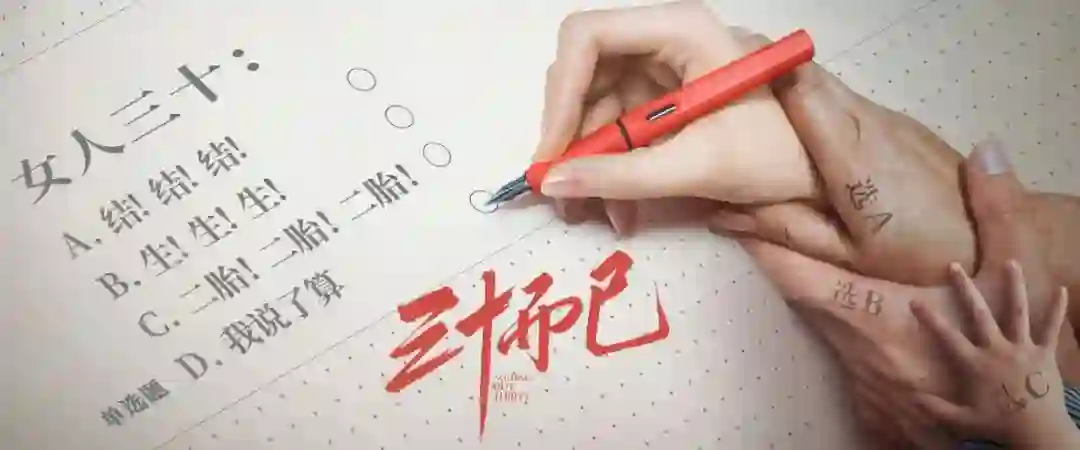 女人三十：
A. 结! 结! 结!
B. 生! 生! 生!
C. 二胎! 二胎! 二胎!
D. 我说了算
单选题
三十而已
选A
选B
C